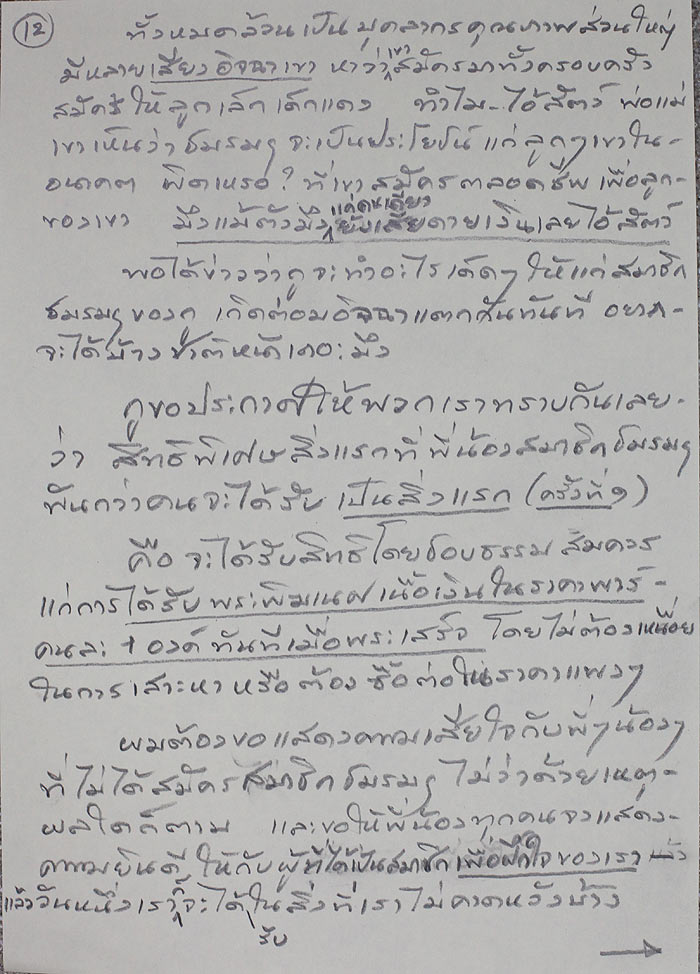 12
ทั้งหมดล้วนเป็นบุคลากรคุณภาพส่วนใหญ่
มีหลายเสียงอิจฉาเขา หาว่าเขาสมัครมาทั้งครอบครัว
สมัครให้ลูกเล็กเด็กแดง ทำไม-ไอ้สัตว์ พ่อแม่
เขาเห็นว่าชมรมฯ จะเป็นประโยชน์แก่ลูกๆเขาใน-
อนาคต ผิดเหรอ? ที่เขาสมัครตลอดชีพเพื่อลูก-
ของเขา มึงแม้ตัวมึงแค่คนเดียวยังเสียดายเงินเลยไอ้สัตว์
พอได้ข่าวว่ากูจะทำอะไรเด็ดๆ ให้แก่สมาชิก
ชมรมฯของกู เกิดต่อมอิจฉาแตกกันทันที อยาก-
จะได้บ้าง มึง
กูขอประกาศให้พวกเราทราบกันเลย-
ว่า สิทธิพิเศษสิ่งแรกที่พี่น้องสมาชิกชมรมฯ
พันกว่าคนจะได้รับ เป็นสิ่งแรก (ครั้งที่ ๑)
คือ จะได้รับสิทธิโดยชอบธรรม สมควร
แก่การได้รับ พระพิฆเนศเนื้อเงินในราคาพาร์-
คนละ 1 องค์ ทันทีเมื่อพระเสร็จ โดยไม่ต้องเหนื่อย
ในการเสาะหา หรือต้องซื้อต่อในราคาแพงๆ
ผมต้องขอแสดงความเสียใจกับพี่ๆน้องๆ
ที่ไม่ได้สมัครสมาชิกชมรมฯ ไม่ว่าด้วยเหตุ-
ผลใดก็ตาม และขอให้พี่น้องทุกคนจงแสดง-
ความยินดี ให้กับผู้ที่ได้เป็นสมาชิกเพื่อฝึกใจของเรา
แล้ววันหนึ่งเราก็จะได้รับในสิ่งที่เราไม่คาดหวังบ้าง